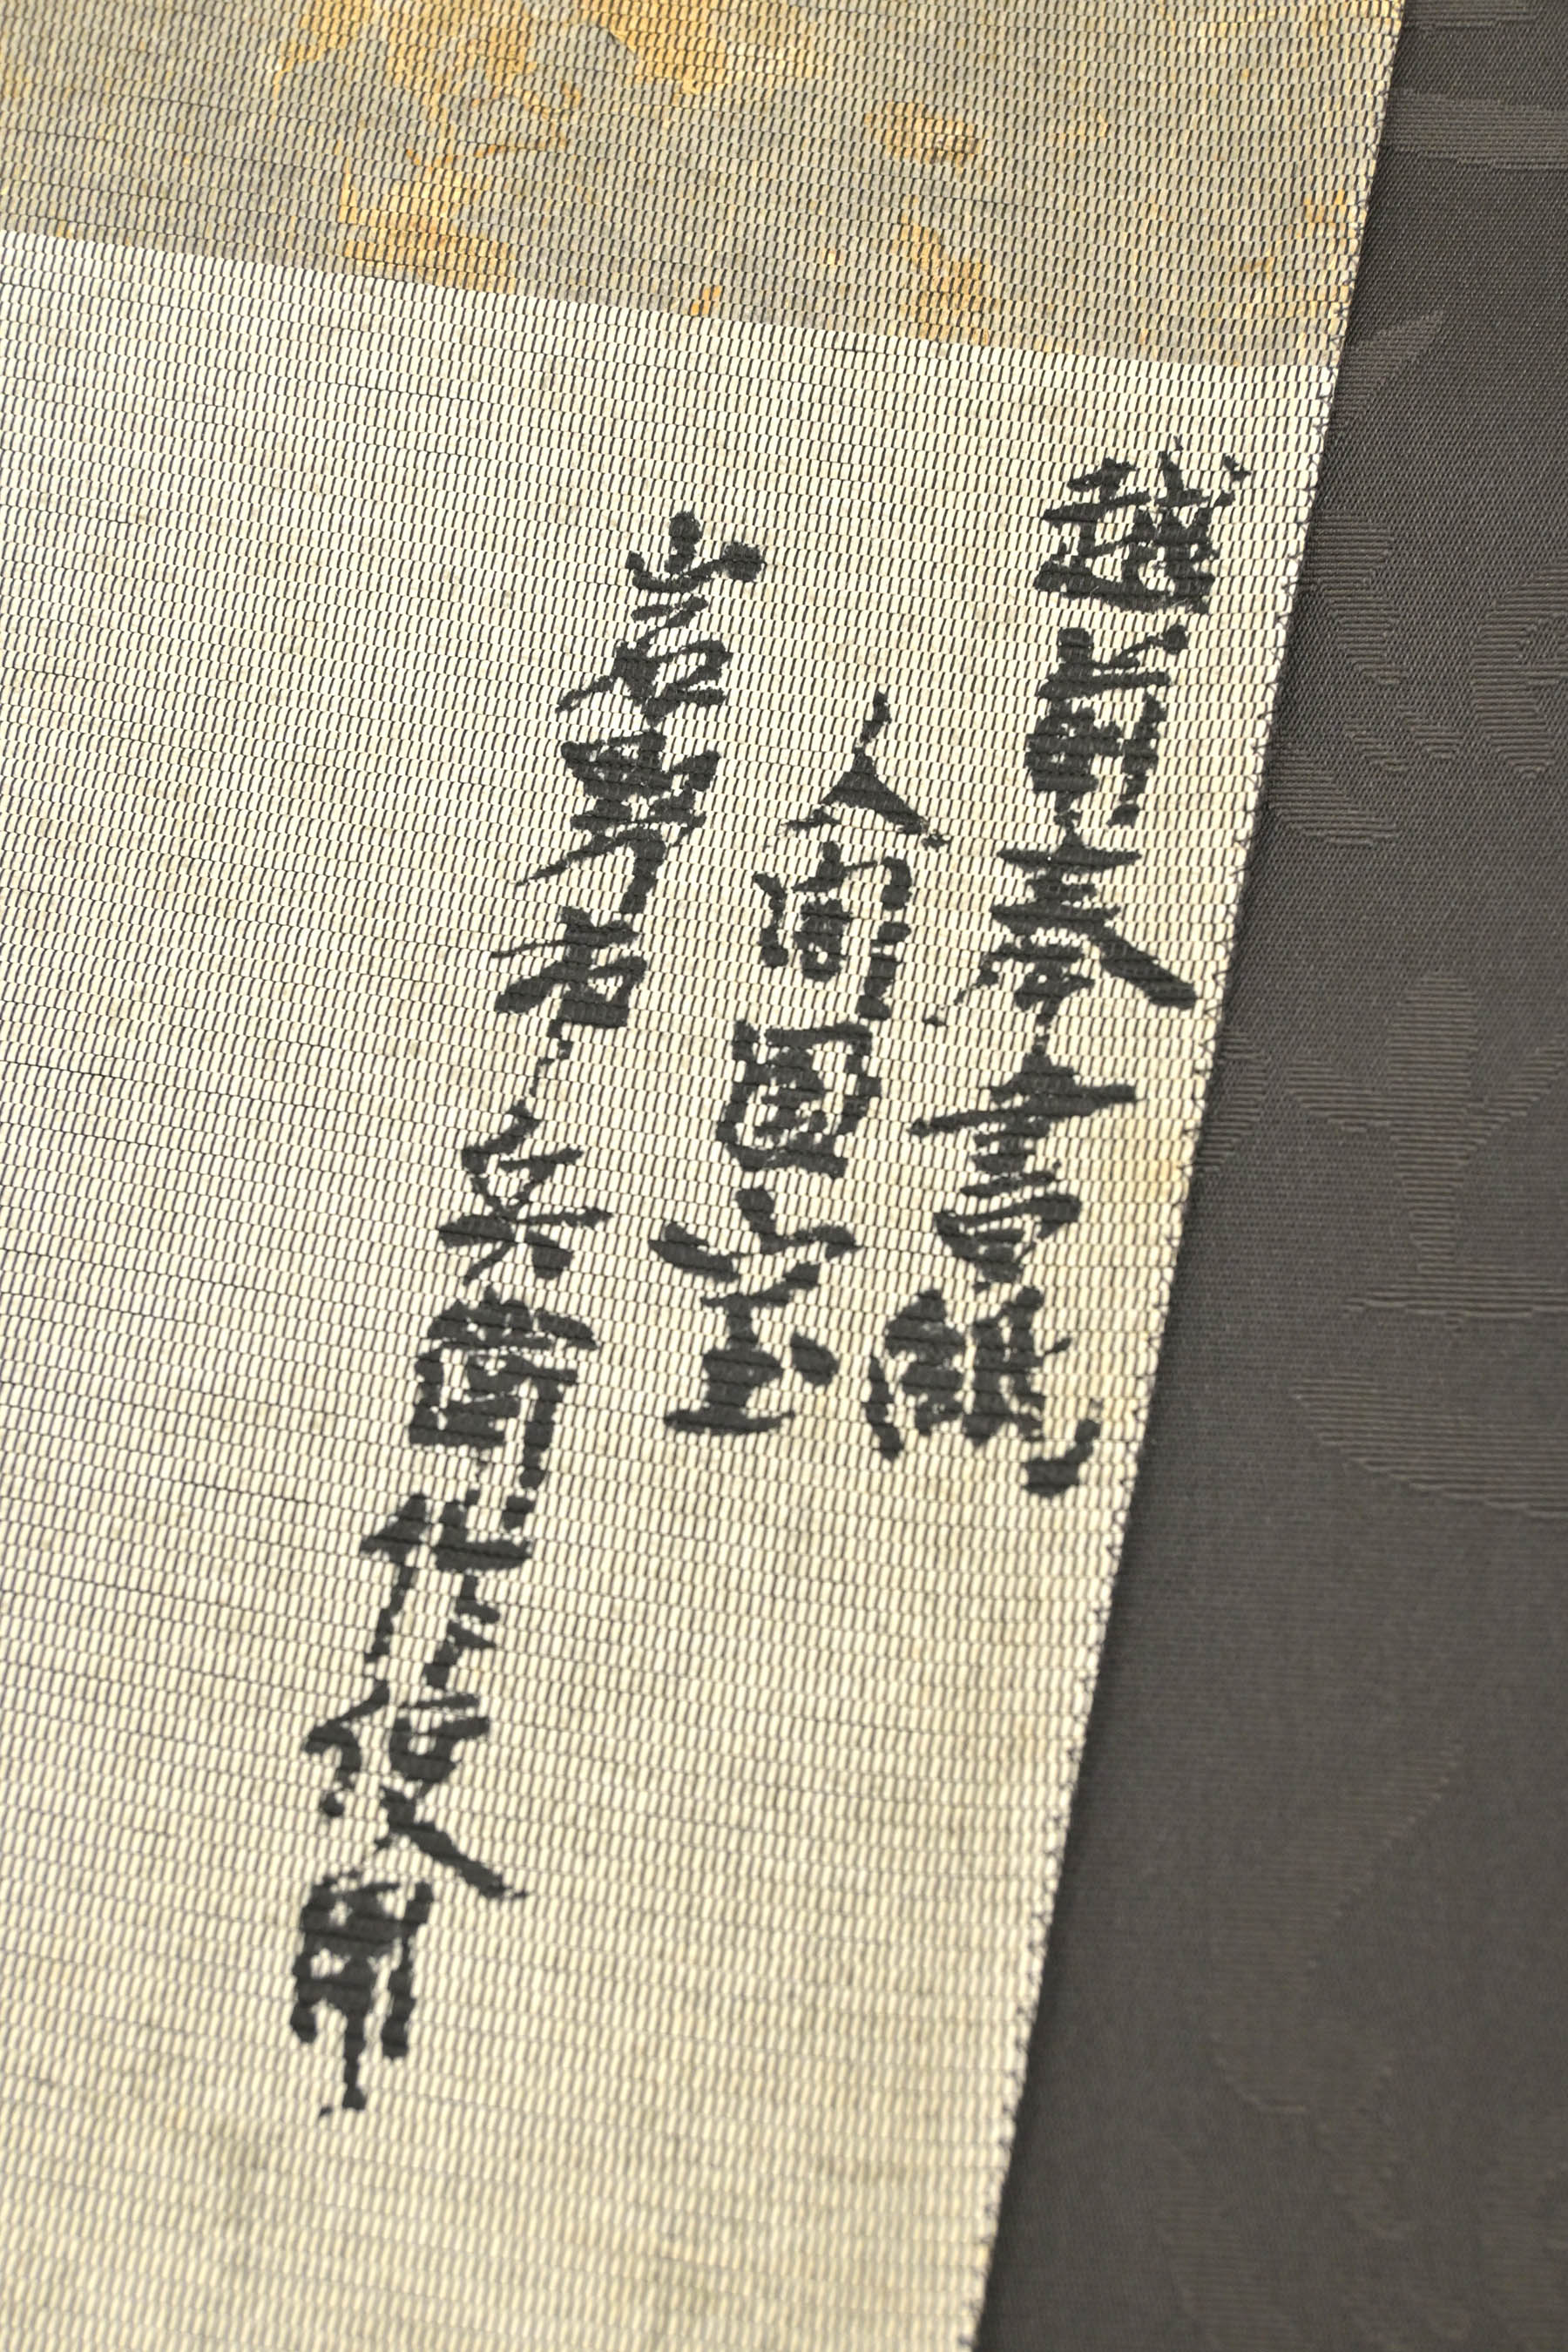 越前奉書紙
人間國宝
岩野市兵衛作使用